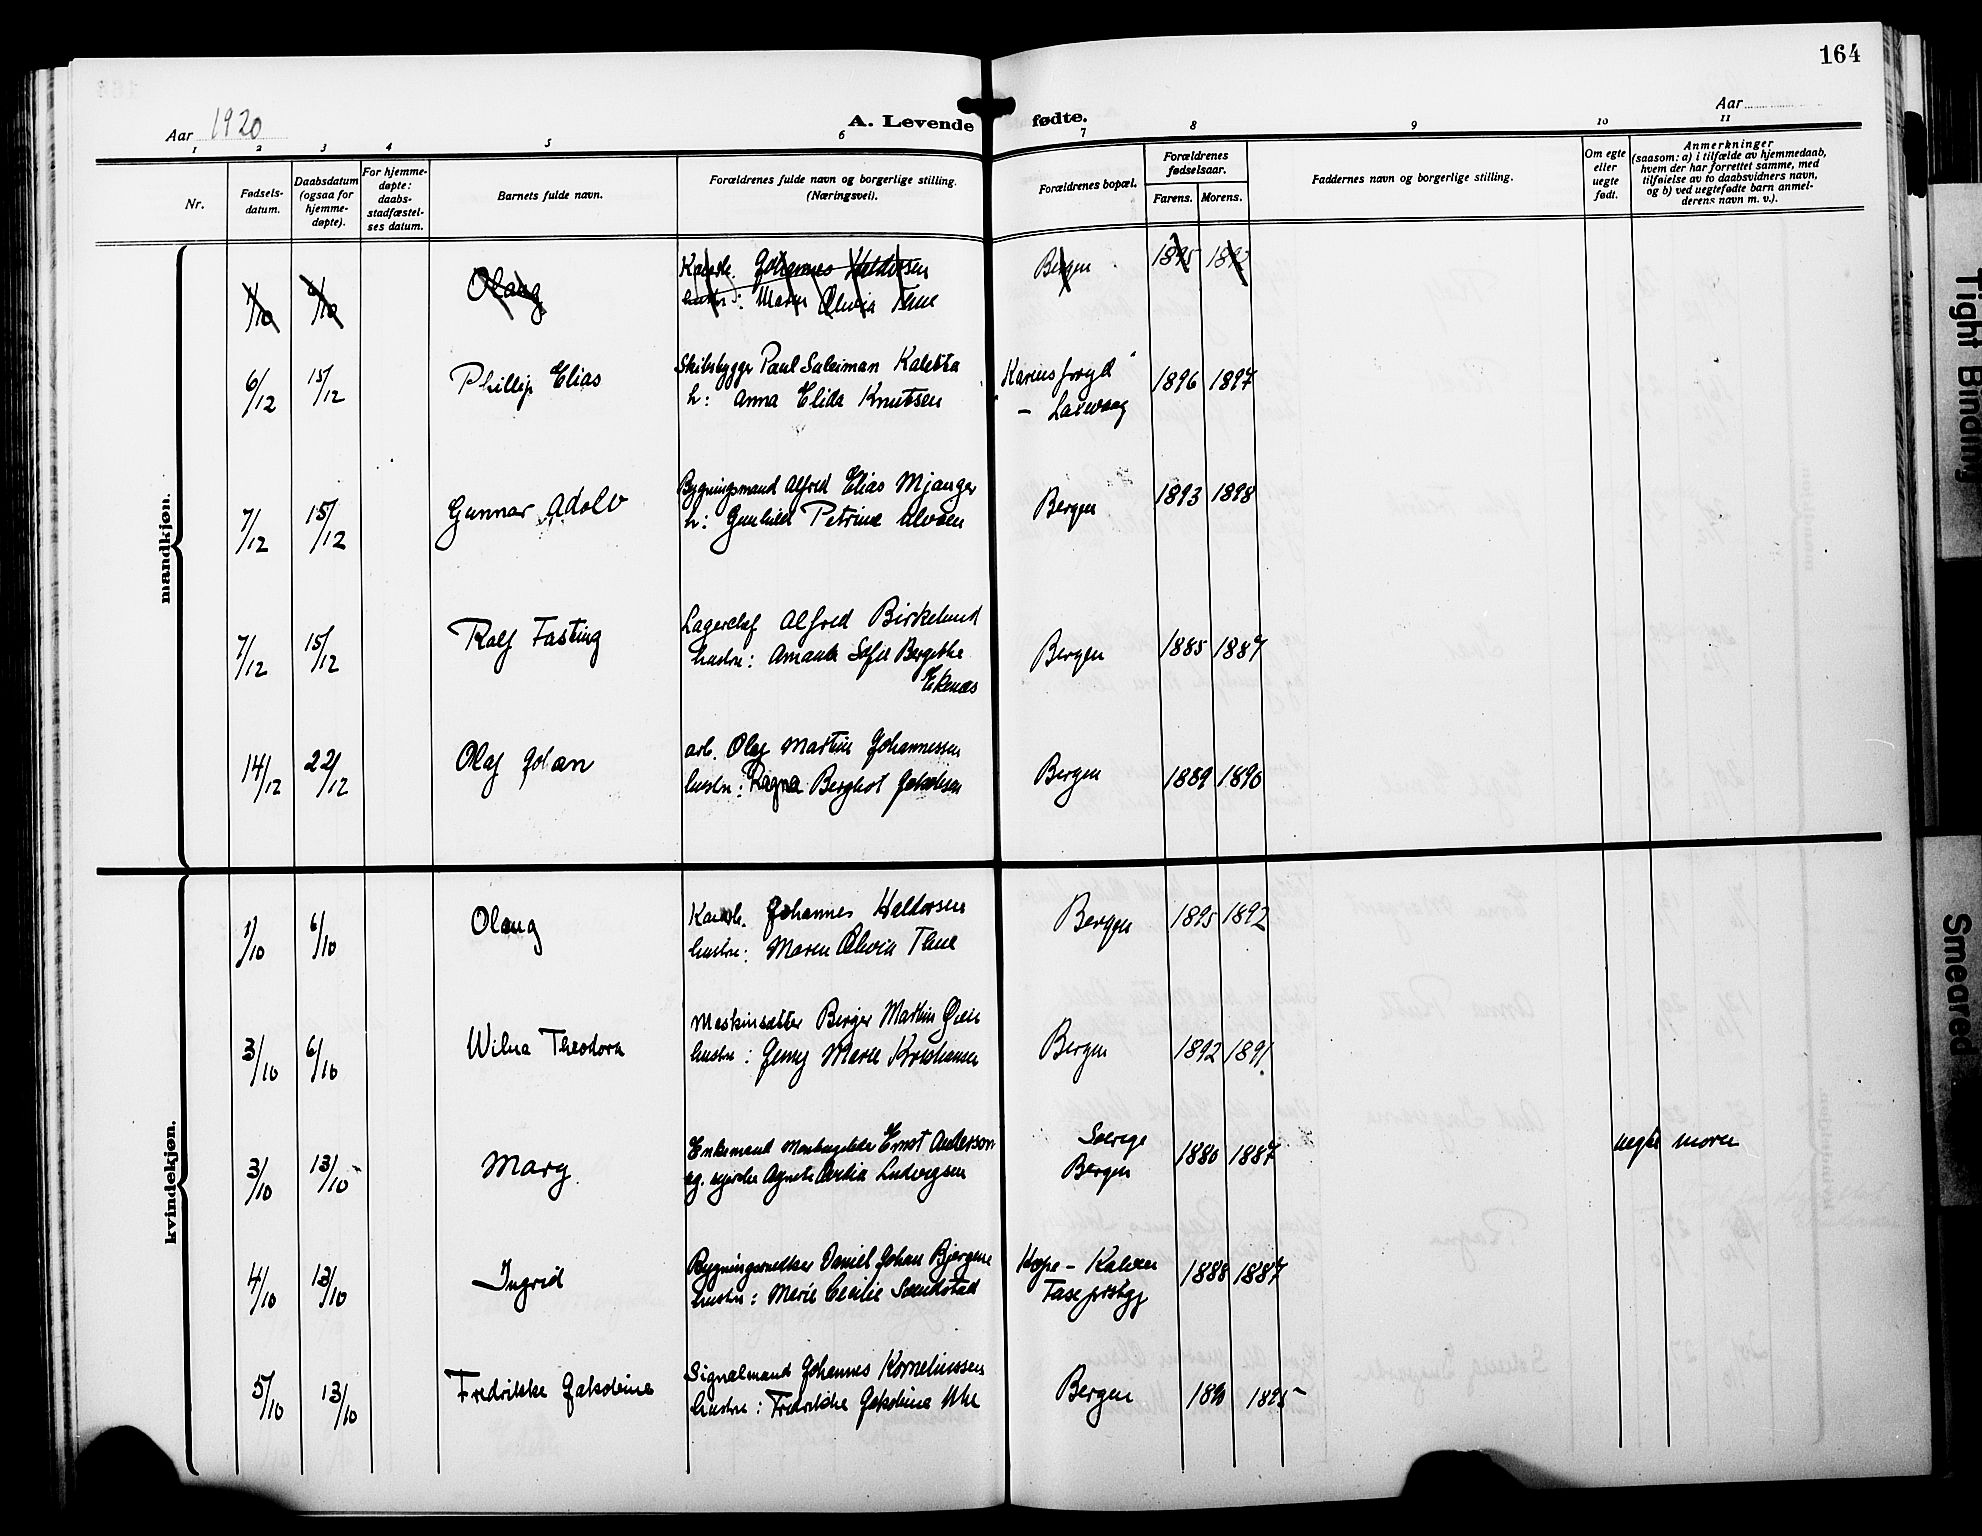 164
Aar 1920
A. Levende fødte.
Aar
1 2 3 4 5 6 7 8 9 10 11
Nr.
Fødsels-
datum.
Daabsdatum
(ogsaa for
hjemme-
døpte).
For hjemme-
døpte:
daabs-
stadfæstel-
ses datum.
Barnets fulde navn.
Forældrenes fulde navn og borgerlige stilling.
(Næringsvei).
Forældrenes bopæl.
Forældrenes
fødselsaar.
Farens. Morens.
Faddernes navn og borgerlige stilling.
Om egte
eller
uegte
født.
Anmerkninger
(saasom: a) i tilfælde av hjemmedaab,
hvem der har forrettet samme, med
tilføielse av to daabsvidners navn,
og b) ved uegtefødte barn anmel-
derens navn m. v.).
mandkjøn.
1/10 6/10 Olaug Johannes Haldorsen Bergen 1895 1892
hustru: Maren
6/12 15/12 Phillip Elias Skibsbygger Paul Suleiman Kaletta 1896 1897
h: Anna Elida Knutsen
– Laxevaag
7/12 15/12 Gunnar Adolv Bygningsmand Alfred Elias Mjanger Bergen 1893 1898
h: Gunhild Petrine Alvøen
7/12 15/12 Ralf Fasting Lagerchef Alfred Birkelund Bergen 1885 1887
hustru: Amanda Sofie Bergithe
Ekenæs
14/12 22/12 Olaf Johan arb. Olaf Martin Johannessen Bergen 1889 1890
hustru: Ragna Berghot Jakobsen
kvindekjøn.
1/10 6/10 Olaug Johannes Haldorsen Bergen 1895 1892
hustru: Maren
3/10 6/10 Wilna Theodora Maskinsætter Berger Martin Bergen 1892 1891
hustru: Jenny Marie Kristiansen
3/10 13/10 Mary Enkemand Ernst Anderson Sverige 1880 1887 uegte moren
og Agnete Ludvigsen Bergen
4/10 13/10 Ingrid Bygningssnedker Daniel Johan Hope – 1888 1887
hustru: Marie Cecilie Sandstad
5/10 13/10 Fredrikke Jakobine Signalmand Johannes Korneliussen Bergen 1895
hustru: Fredrikke Jakobine
Tight Binding
Smeared